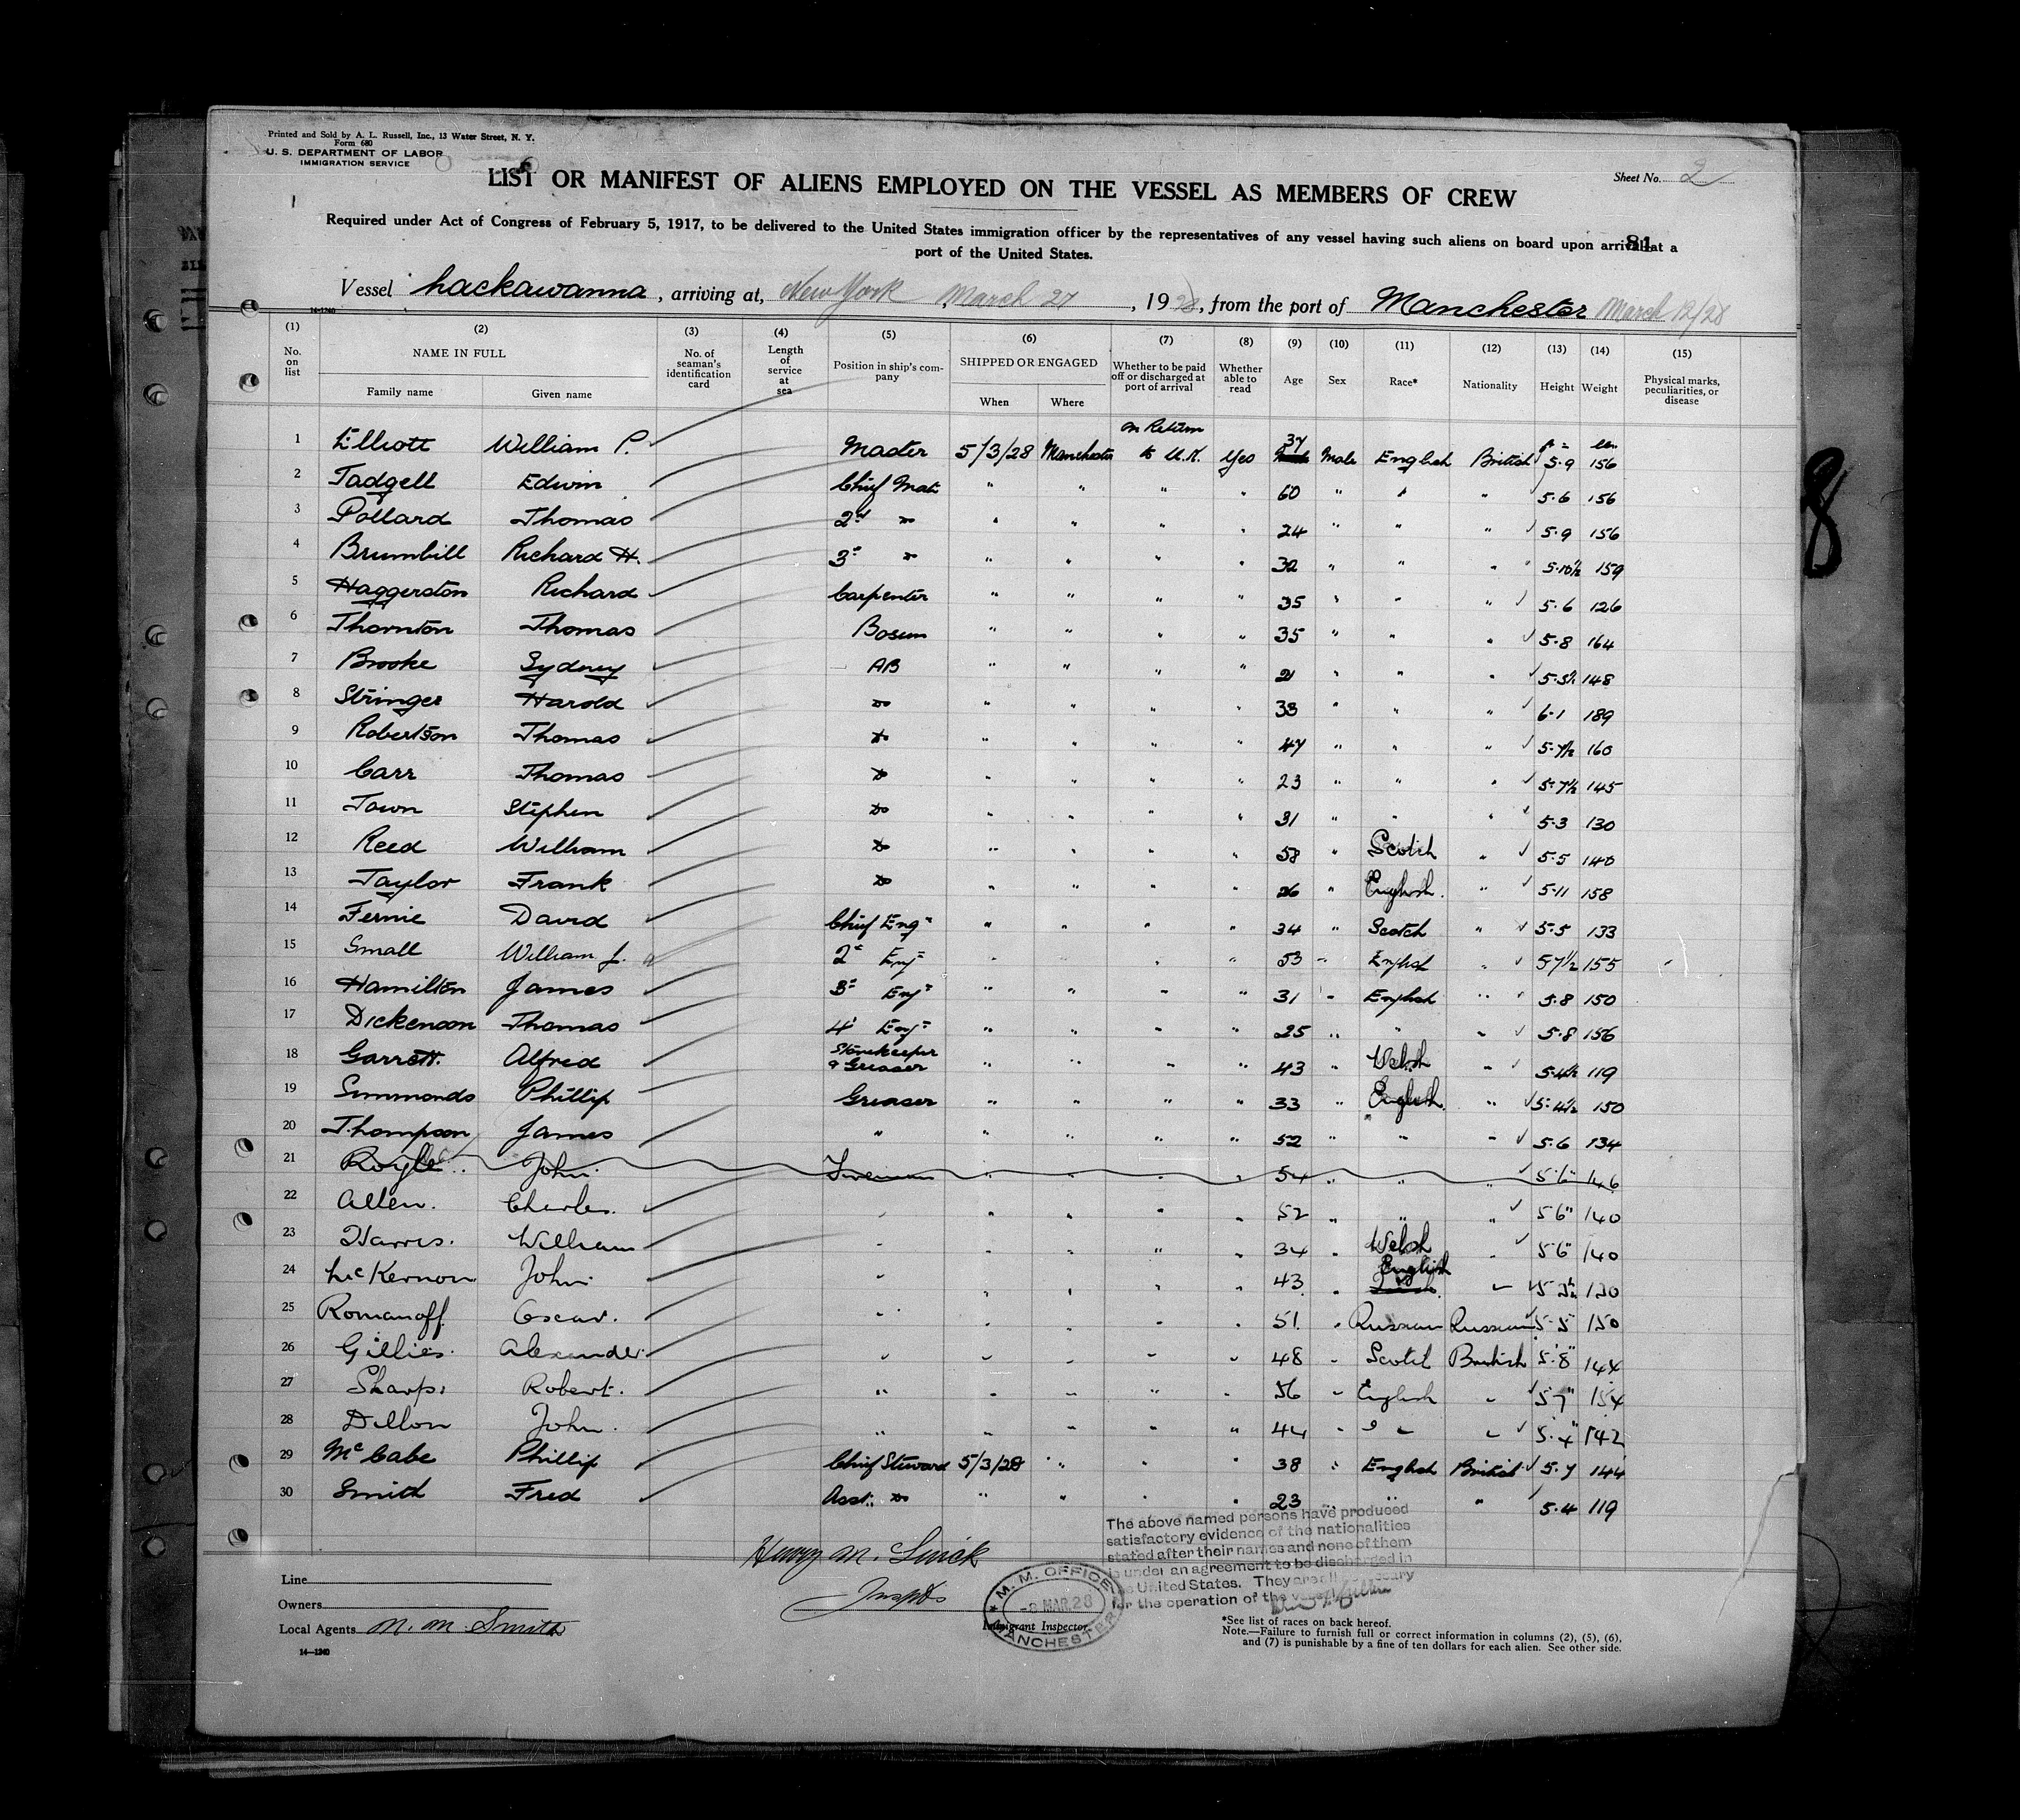 Printed and Sold by A. L. Russell, Inc., 13 Water Street, N. Y.
Form 680
U. S. DEPARTMENT OF LABOR
IMMIGRATION SERVICE
Sheet No. 2
LIST OR MANIFEST OF ALIENS EMPLOYED ON THE VESSEL AS MEMBERS OF CREW
Required under Act of Congress of February 5, 1917, to be delivered to the United States immigration officer by the representatives of any vessel having such aliens on board upon arrival at a
port of the United States.
81
Vessel Lackawanna, arriving at, New York, March 27, 1928, from the port of Manchester March 12/28
14-1240
(1) (2) (3) (4) (5) (6) (7) (8) (9) (10) (11) (12) (13) (14) (15)
No. on list NAME IN FULL Family name Given name No. of seaman's identification card Length of service at sea Position in ship's company SHIPPED OR ENGAGED When Where Whether to be paid off or discharged at port of arrival Whether able to read Age Sex Race* Nationality Height Weight Physical marks, peculiarities, or disease
1 Elliott William P. Master 5/3/28 Manchester on Return to U.K. Yes 37 Male English British 5·9 156
2 Tadgell Edwin Chief Mate " " " " 60 " " " 5·6 156
3 Pollard Thomas 2nd do " " " " 24 " " " 5·9 156
8
4 Brumbill Richard H. 3 do " " " " 32 " " " 5·10½ 159
5 Haggerston Richard Carpenter " " " " 35 " " " 5·6 126
6 Thornton Thomas Bosun " " " " 35 " " " 5·8 164
7 Brooke Sydney AB " " " " 21 " " " 148
8 Stringer Harold do " " " " 33 " " " 6·1 189
9 Robertson Thomas do " " " " 47 " " " 5·7½ 160
10 Carr Thomas do " " " " 23 " " " 5·7½ 145
11 Town Stephen do " " " " 31 " " " 5·3 130
12 Reed William do " " " " 58 " Scotch " 5·5 140
13 Taylor Frank do " " " " 26 " English. " 5·11 158
14 Fernie David Chief Engr " " " " 34 " Scotch " 5·5 133
15 Small William J. 2 Engr " " " " 53 " English " 5 7½ 155
16 Hamilton James 3 Engr " " " " 31 " English " 5·8 150
17 Dickenson Thomas 4 Engr " " " " 25 " " " 5·8 156
18 Garrett. Alfred Storekeeper & Greaser " " " " 43 " Welsh " 5·4½ 119
19 Simmonds Phillip Greaser " " " " 33 " English. " 5·4½ 150
20 Thompson James " " " " " 52 " " " 5·6 134
21 Royle. John Fireman " " " " 54 " " " 5'6" 146
22 Allen. Charles. " " " " " 52 " " " 5 6" 140
23 Harris. William " " " " " 34 " Welsh " 5 6" 140
24 McKernon John " " " " " 43 " English " 130
25 Romanoff. Oscar. " " " " " 51 " Russian Russian 5·5 150
26 Gillies. Alexander. " " " " " 48 " Scotch British 5'8" 144
27 Sharp. Robert. " " " " " 56 " English " 5 7" 154
28 Dillon John. " " " " " 44 " " " 5·4" 142
29 McCabe Phillip Chief Steward 5/3/28 " " " 38 " English British 5·7 144
30 Smith Fred Asst. do " " " " 23 " " " 5·4 119
The above named persons have produced
satisfactory evidence of the nationalities
stated after their names and none of them
is under an agreement to be discharged in
the United States. They are all necessary
for the operation of the vessel
Line
Owners
Local Agents M. M. Smith
14-1240
Henry M.
Immigrant Inspector.
M. M. OFFICE
-8 MAR. 28
MANCHESTER
*See list of races on back hereof.
Note.—Failure to furnish full or correct information in columns (2), (5), (6),
and (7) is punishable by a fine of ten dollars for each alien. See other side.